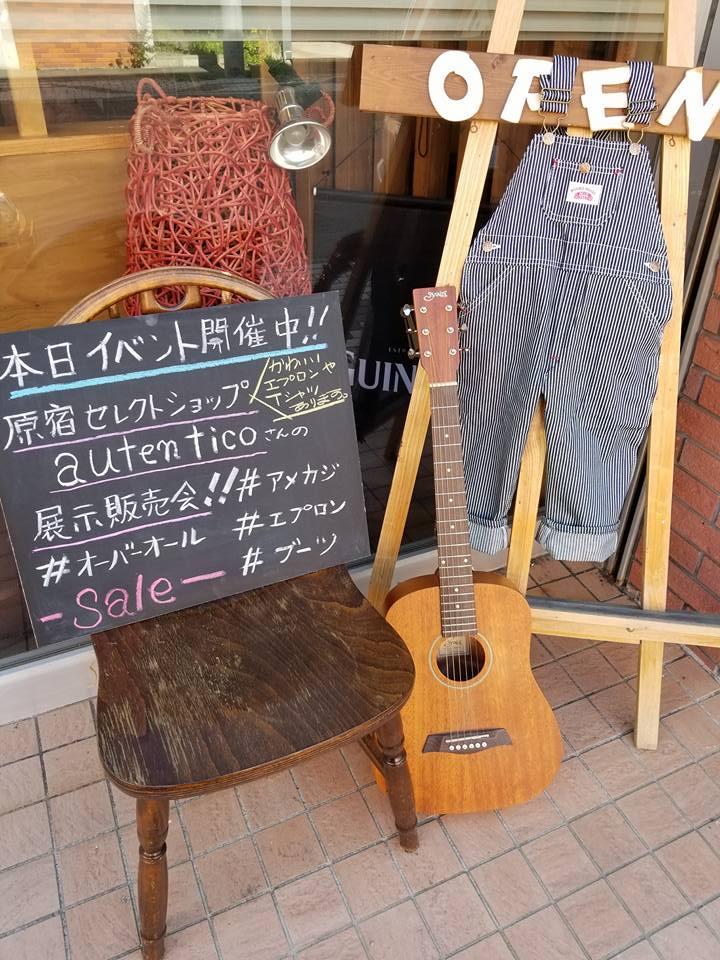 OPEN
本日イベント開催中!!
かわいい
エプロンや
Tシャツ
あります。
原宿セレクトショップ
autenticoさんの
展示販売会!!
#アメカジ
#エプロン
#オーバーオール
#ブーツ
-Sale-
GUIN
S.Yairi